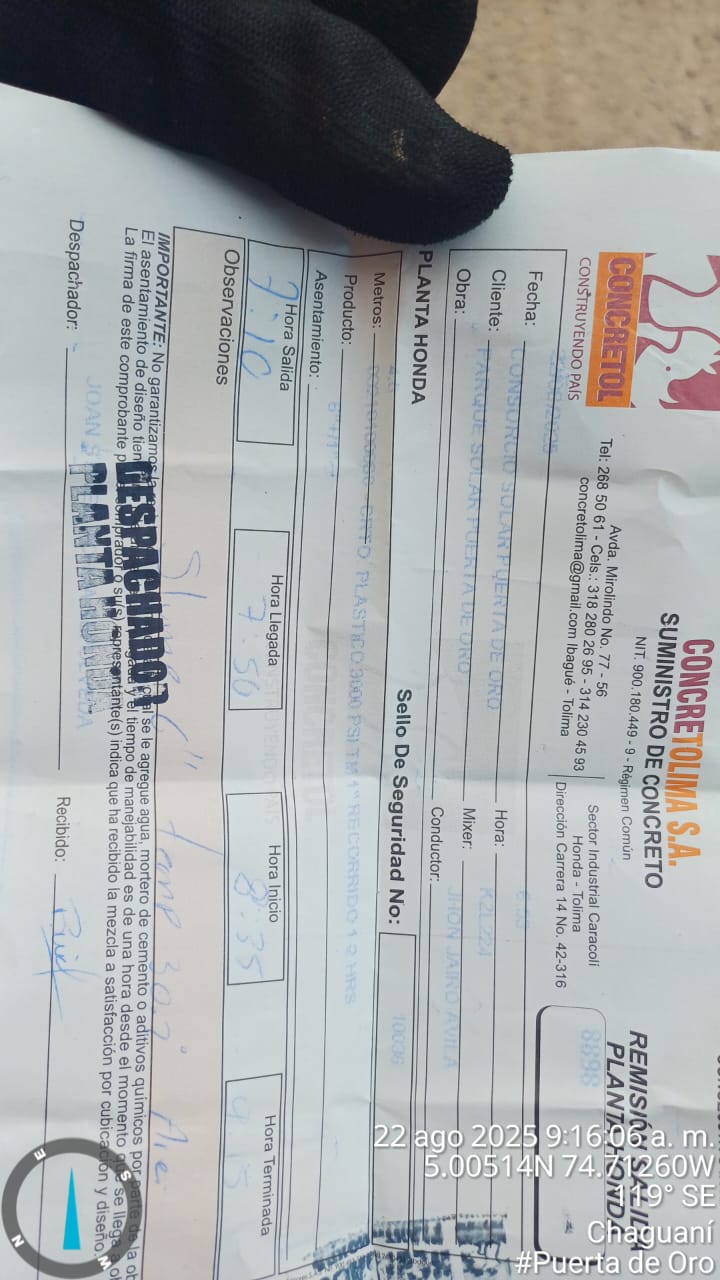 CONCRETOLIMA S.A.
SUMINISTRO DE CONCRETO
NIT. 900.180.449 - 9 - Régimen Común
CONCRETOL
CONSTRUYENDO PAÍS
Avda. Mirolindo No. 77 - 56
Tel: 268 50 61 - Cels.: 318 280 26 95 - 314 230 45 93
concretolima@gmail.com Ibagué - Tolima
Sector Industrial Caracolí
Honda - Tolima
Dirección Carrera 14 No. 42-316
REMISIÓN SALIDA
PLANTA HONDA
8898
Fecha: 22/08/2025 Hora: 6:58
Cliente: CONSORCIO SOLAR PUERTA DE ORO Mixer:
Obra: PARQUE SOLAR PUERTA DE ORO Conductor: JHON JAIRO AVILA
PLANTA HONDA Sello De Seguridad No:
Metros: 4.0
Producto: PLASTICO 3000 PSI TM 1" RECORRIDO 1 2 HRS
Asentamiento:
Hora Salida 7:10
Hora Llegada 7:50
Hora Inicio 8:35
Hora Terminada 9:15
Observaciones
Slump 6" Tamp 30.7° Aire
IMPORTANTE: No garantizamos
El asentamiento de diseño tien
La firma de este comprobante p
se le agregue agua, mortero de cemento o aditivos químicos por parte de la ob
y el tiempo de manejabilidad es de una hora desde el momento que se llega a ob
comprador o su(s) representante(s) indica que ha recibido la mezcla a satisfacción por cubicación y diseño.
DESPACHADO
PLANTA HONDA
Despachador: JOAN
Recibido:
22 ago 2025 9:16:06 a. m.
5.00514N 74.71260W
119° SE
Chaguaní
#Puerta de Oro
N
E
S
W